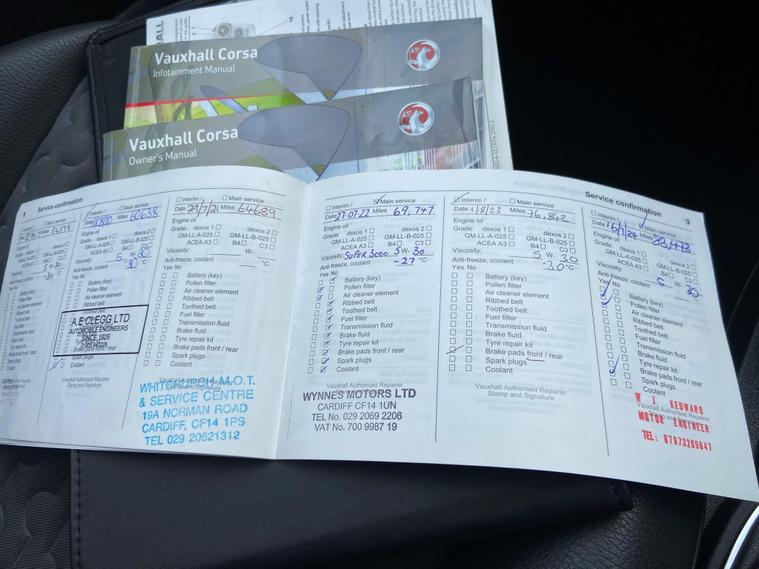 Vauxhall Corsa
Infotainment Manual
Vauxhall Corsa
Owner's Manual
8 Service confirmation
Main service
Miles
5 W- 30
-30 °C
Yes No
Interim / Main service
Miles 60638
Engine oil
Grade: dexos 1 dexos 2
GM-LL-A-025 GM-LL-B-025
ACEA A3 B4 C3
Viscosity: 5 W- 30
Anti-freeze, coolant -30 °C
Yes No
Battery (key)
Pollen filter
Air cleaner element
Ribbed belt
Toothed belt
A E CLEGG LTD
AUTOMOBILE ENGINEERS
SINCE 1929
Spark plugs
Coolant
Interim / Main service
Date Miles 64689
Engine oil
Grade: dexos 1 dexos 2
GM-LL-A-025 GM-LL-B-025
ACEA A3 B4 C3
Viscosity: W-
Anti-freeze, coolant °C
Yes No
Battery (key)
Pollen filter
Air cleaner element
Ribbed belt
Toothed belt
Fuel filter
Transmission fluid
Brake fluid
Tyre repair kit
Brake pads front / rear
Spark plugs
Coolant
WHITCHURCH M.O.T.
& SERVICE CENTRE
19A NORMAN ROAD
CARDIFF, CF14 1PS
TEL 029 20621312
Interim / Main service
Date 27.07.22 Miles 69,747
Engine oil
Grade: dexos 1 dexos 2
GM-LL-A-025 GM-LL-B-025
ACEA A3 B4 C3
Viscosity: SUPER 3000 5 W- 30
Anti-freeze, coolant -27 °C
Yes No
Battery (key)
Pollen filter
Air cleaner element
Ribbed belt
Toothed belt
Fuel filter
Transmission fluid
Brake fluid
Tyre repair kit
Brake pads front / rear
Spark plugs
Coolant
Vauxhall Authorised Repairer
WYNNES MOTORS LTD
CARDIFF CF14 1UN
TEL No. 029 2069 2206
VAT No. 700 9987 19
Service confirmation 9
Interim / Main service
Date 1/8/23 Miles 76,842
Engine oil
Grade: dexos 1 dexos 2
GM-LL-A-025 GM-LL-B-025
ACEA A3 B4 C3
Viscosity: 5 W- 30
Anti-freeze, coolant -30 °C
Yes No
Battery (key)
Pollen filter
Air cleaner element
Ribbed belt
Toothed belt
Fuel filter
Transmission fluid
Brake fluid
Tyre repair kit
Brake pads front / rear
Spark plugs
Coolant
Vauxhall Authorised Repairer
Stamp and Signature
Interim / Main service
Date Miles
Engine oil
Grade: dexos 1 dexos 2
GM-LL-A-025 GM-LL-B-025
ACEA A3 B4 C3
Viscosity: 5 W- 30
Anti-freeze, coolant °C
Yes No
Battery (key)
Pollen filter
Air cleaner element
Ribbed belt
Toothed belt
Fuel filter
Transmission fluid
Brake fluid
Tyre repair kit
Brake pads front / rear
Spark plugs
Coolant
Vauxhall Authorised Repairer
Stamp and Signature
MOTOR ENGINEER
TEL: 07873289647